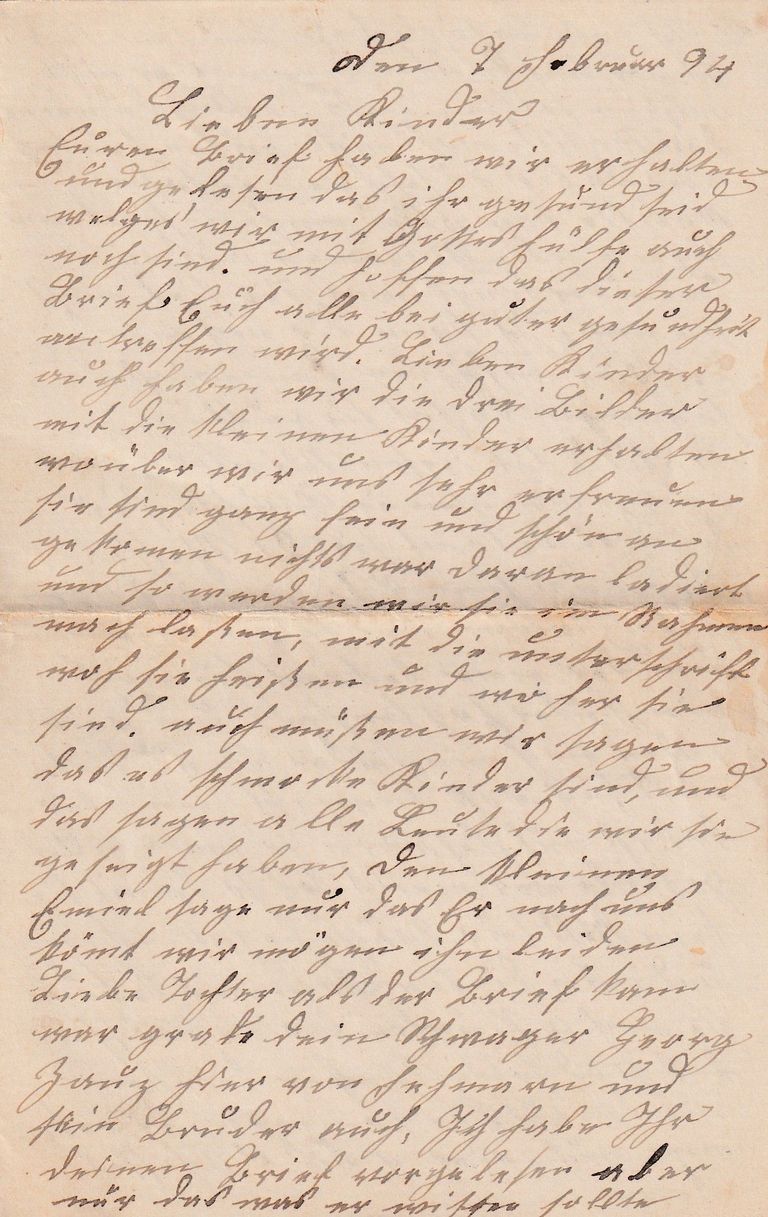 den 7 Februar 94
Lieben Kinder
Euren Brief haben wir erhalten
und gelesen das ihr gesund seid
welges wir mit Gottes hülfe auch
noch sind. und hoffen das dieser
Brief Euch alle bei guter gesundheit
antreffen wird. Lieben Kinder
auch haben wir die drei Bilder
mit die kleinen Kinder erhalten
worüber wir uns sehr erfreuen
sie sind ganz fein und schön an
gekomen nichts war daran ladiert
und so werden wir sie im Rahmen
mach laßen, mit die unterschrift
woh sie heißen und wo her sie
sind. auch müßen wir sagen
das es schmocke Kinder sind, und
das sagen alle Leute die wir sie
geseigt haben, den kleinen
Emiel sage nur das Er nach uns
kömt wir mögen ihn leiden
Liebe Tochter als der Brief kam
war grade dein Schwager Georg
hier von Fehmarn und
sein Bruder auch, Ich habe Ihr
deinen Brief vorgelesen aber
nur das was er wissen sollte